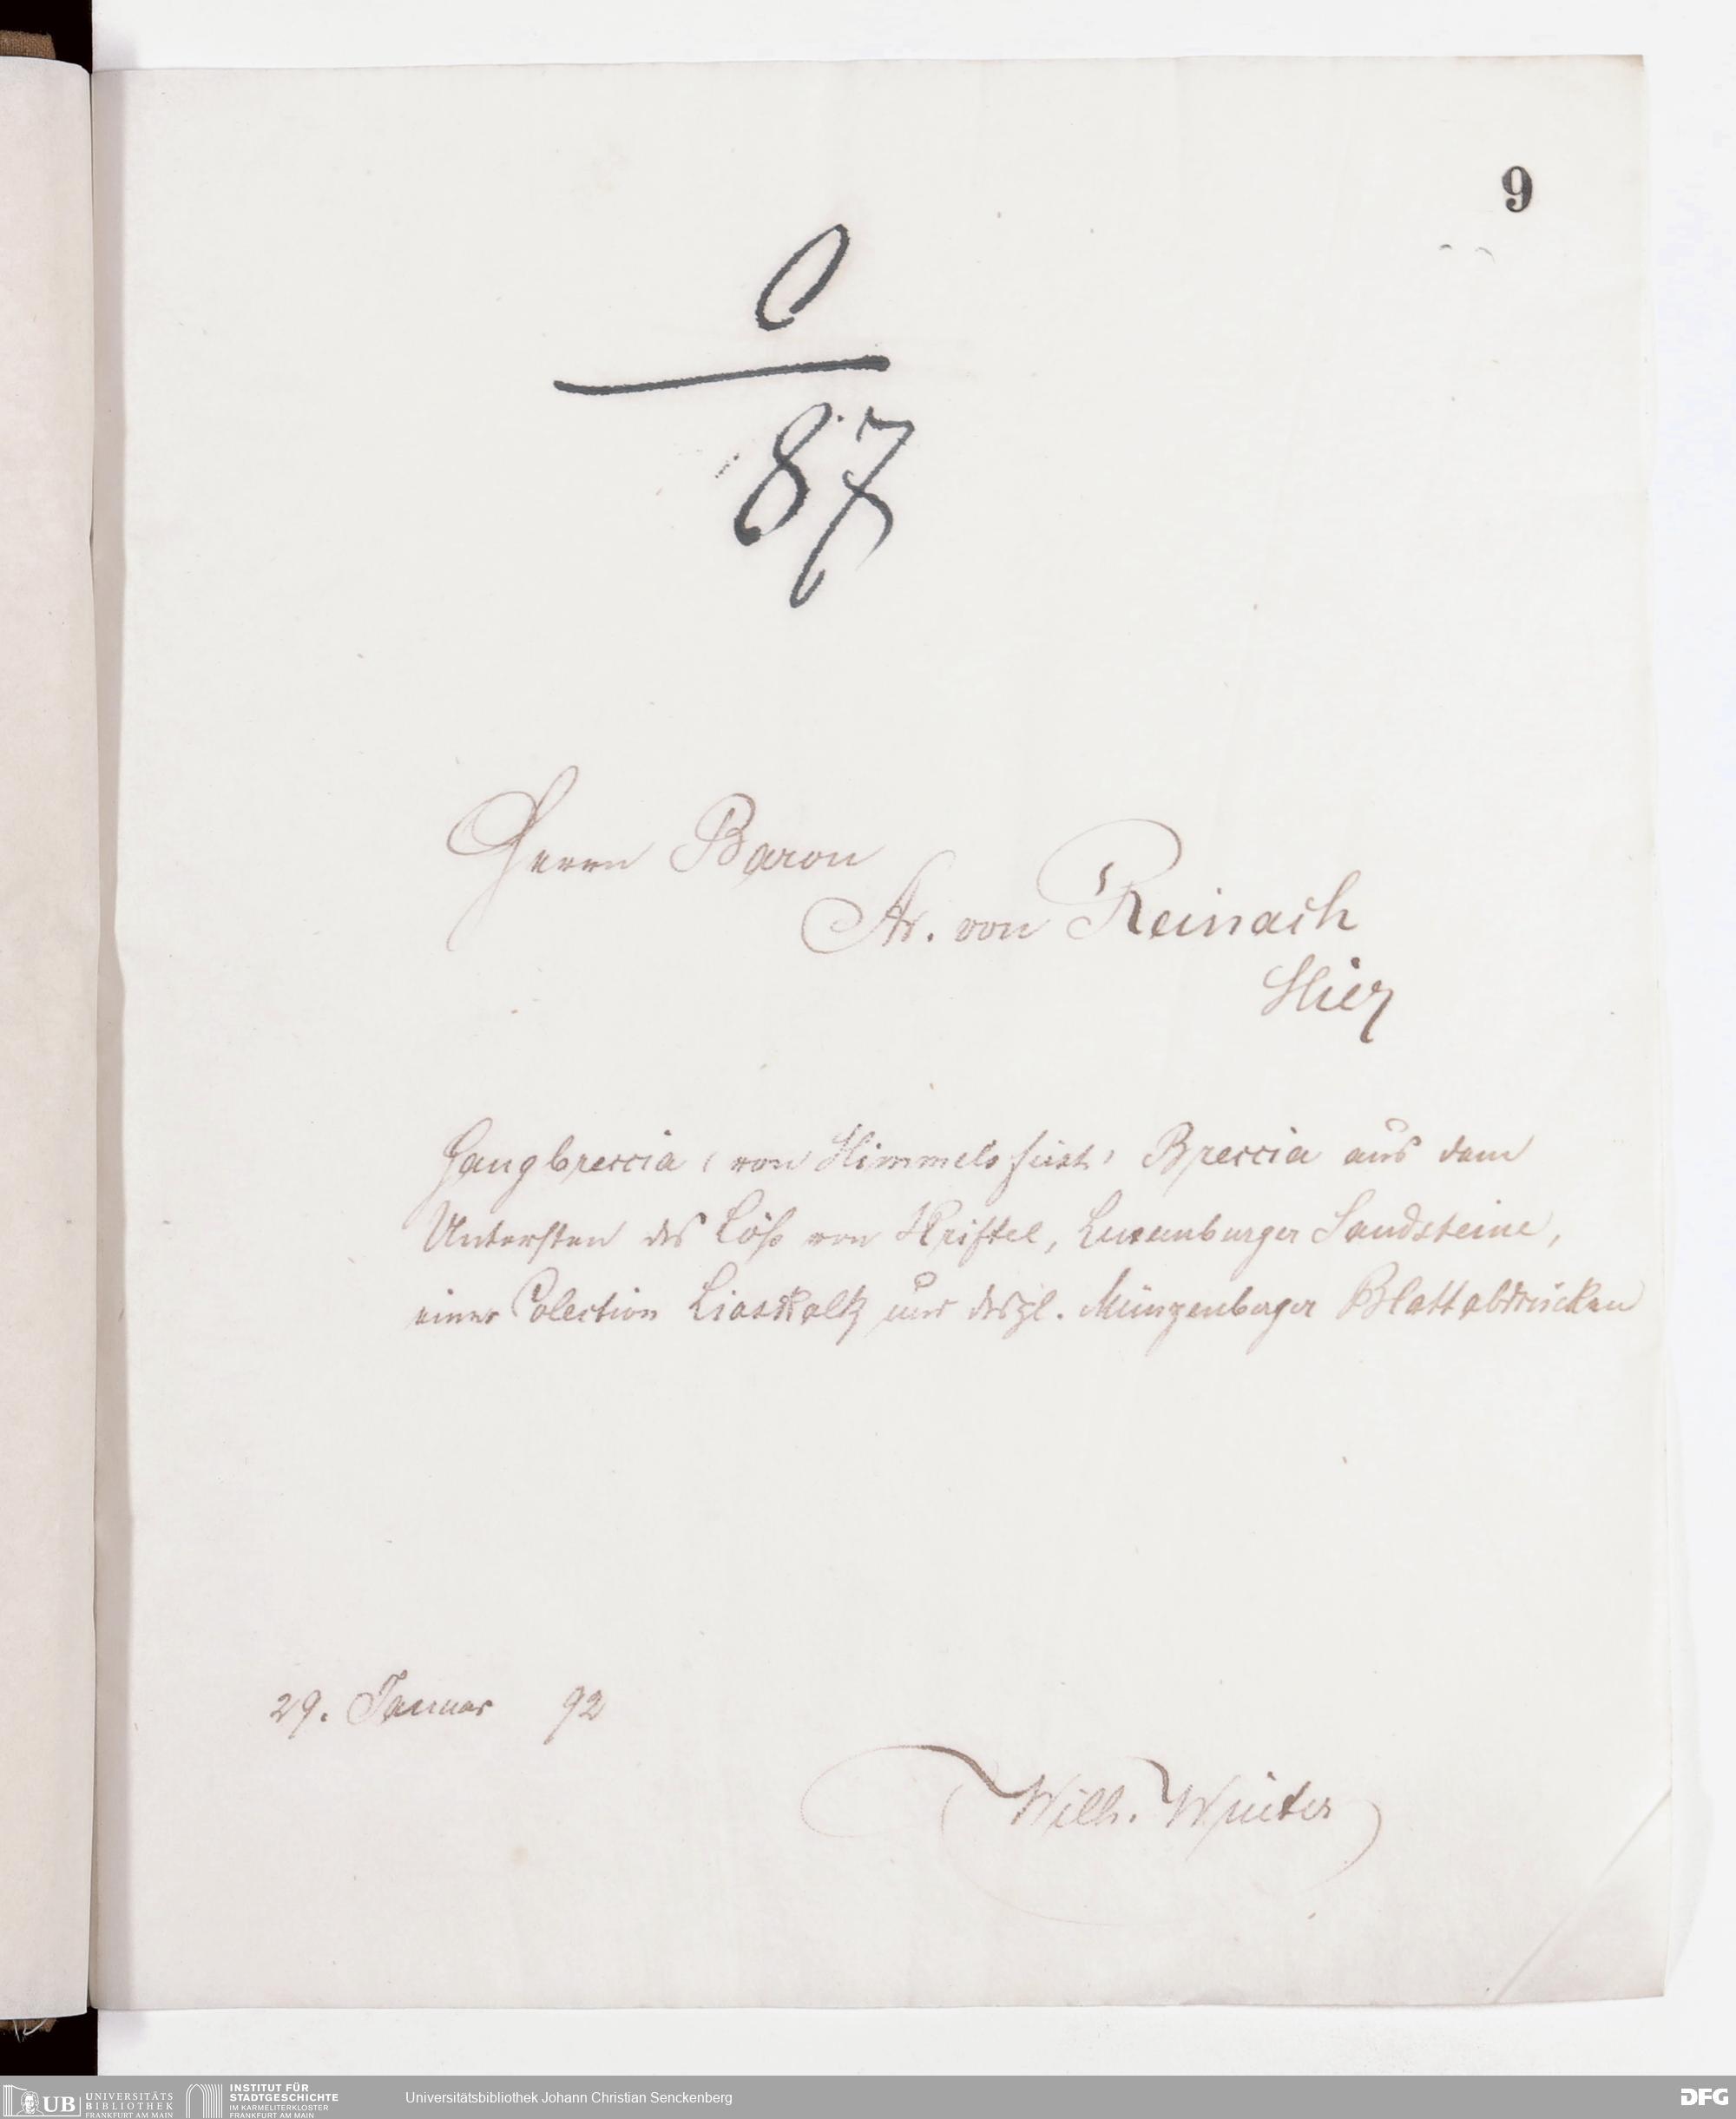 9
0
87
Herrn Baron
A. von Reinach
Hier
Gangbreccia (von Himmelsfürst) Breccia aus dem
Untersten des Löß von Kriftel, Luxemburger Sandsteine,
einer Colection Liaskalk und desgl. Münzenberger Blattabdrücken
29. Januar 92
Wilh. Winter
UB UNIVERSITÄTS
BIBLIOTHEK
FRANKFURT AM MAIN
INSTITUT FÜR
STADTGESCHICHTE
IM KARMELITERKLOSTER
FRANKFURT AM MAIN
Universitätsbibliothek Johann Christian Senckenberg
DFG